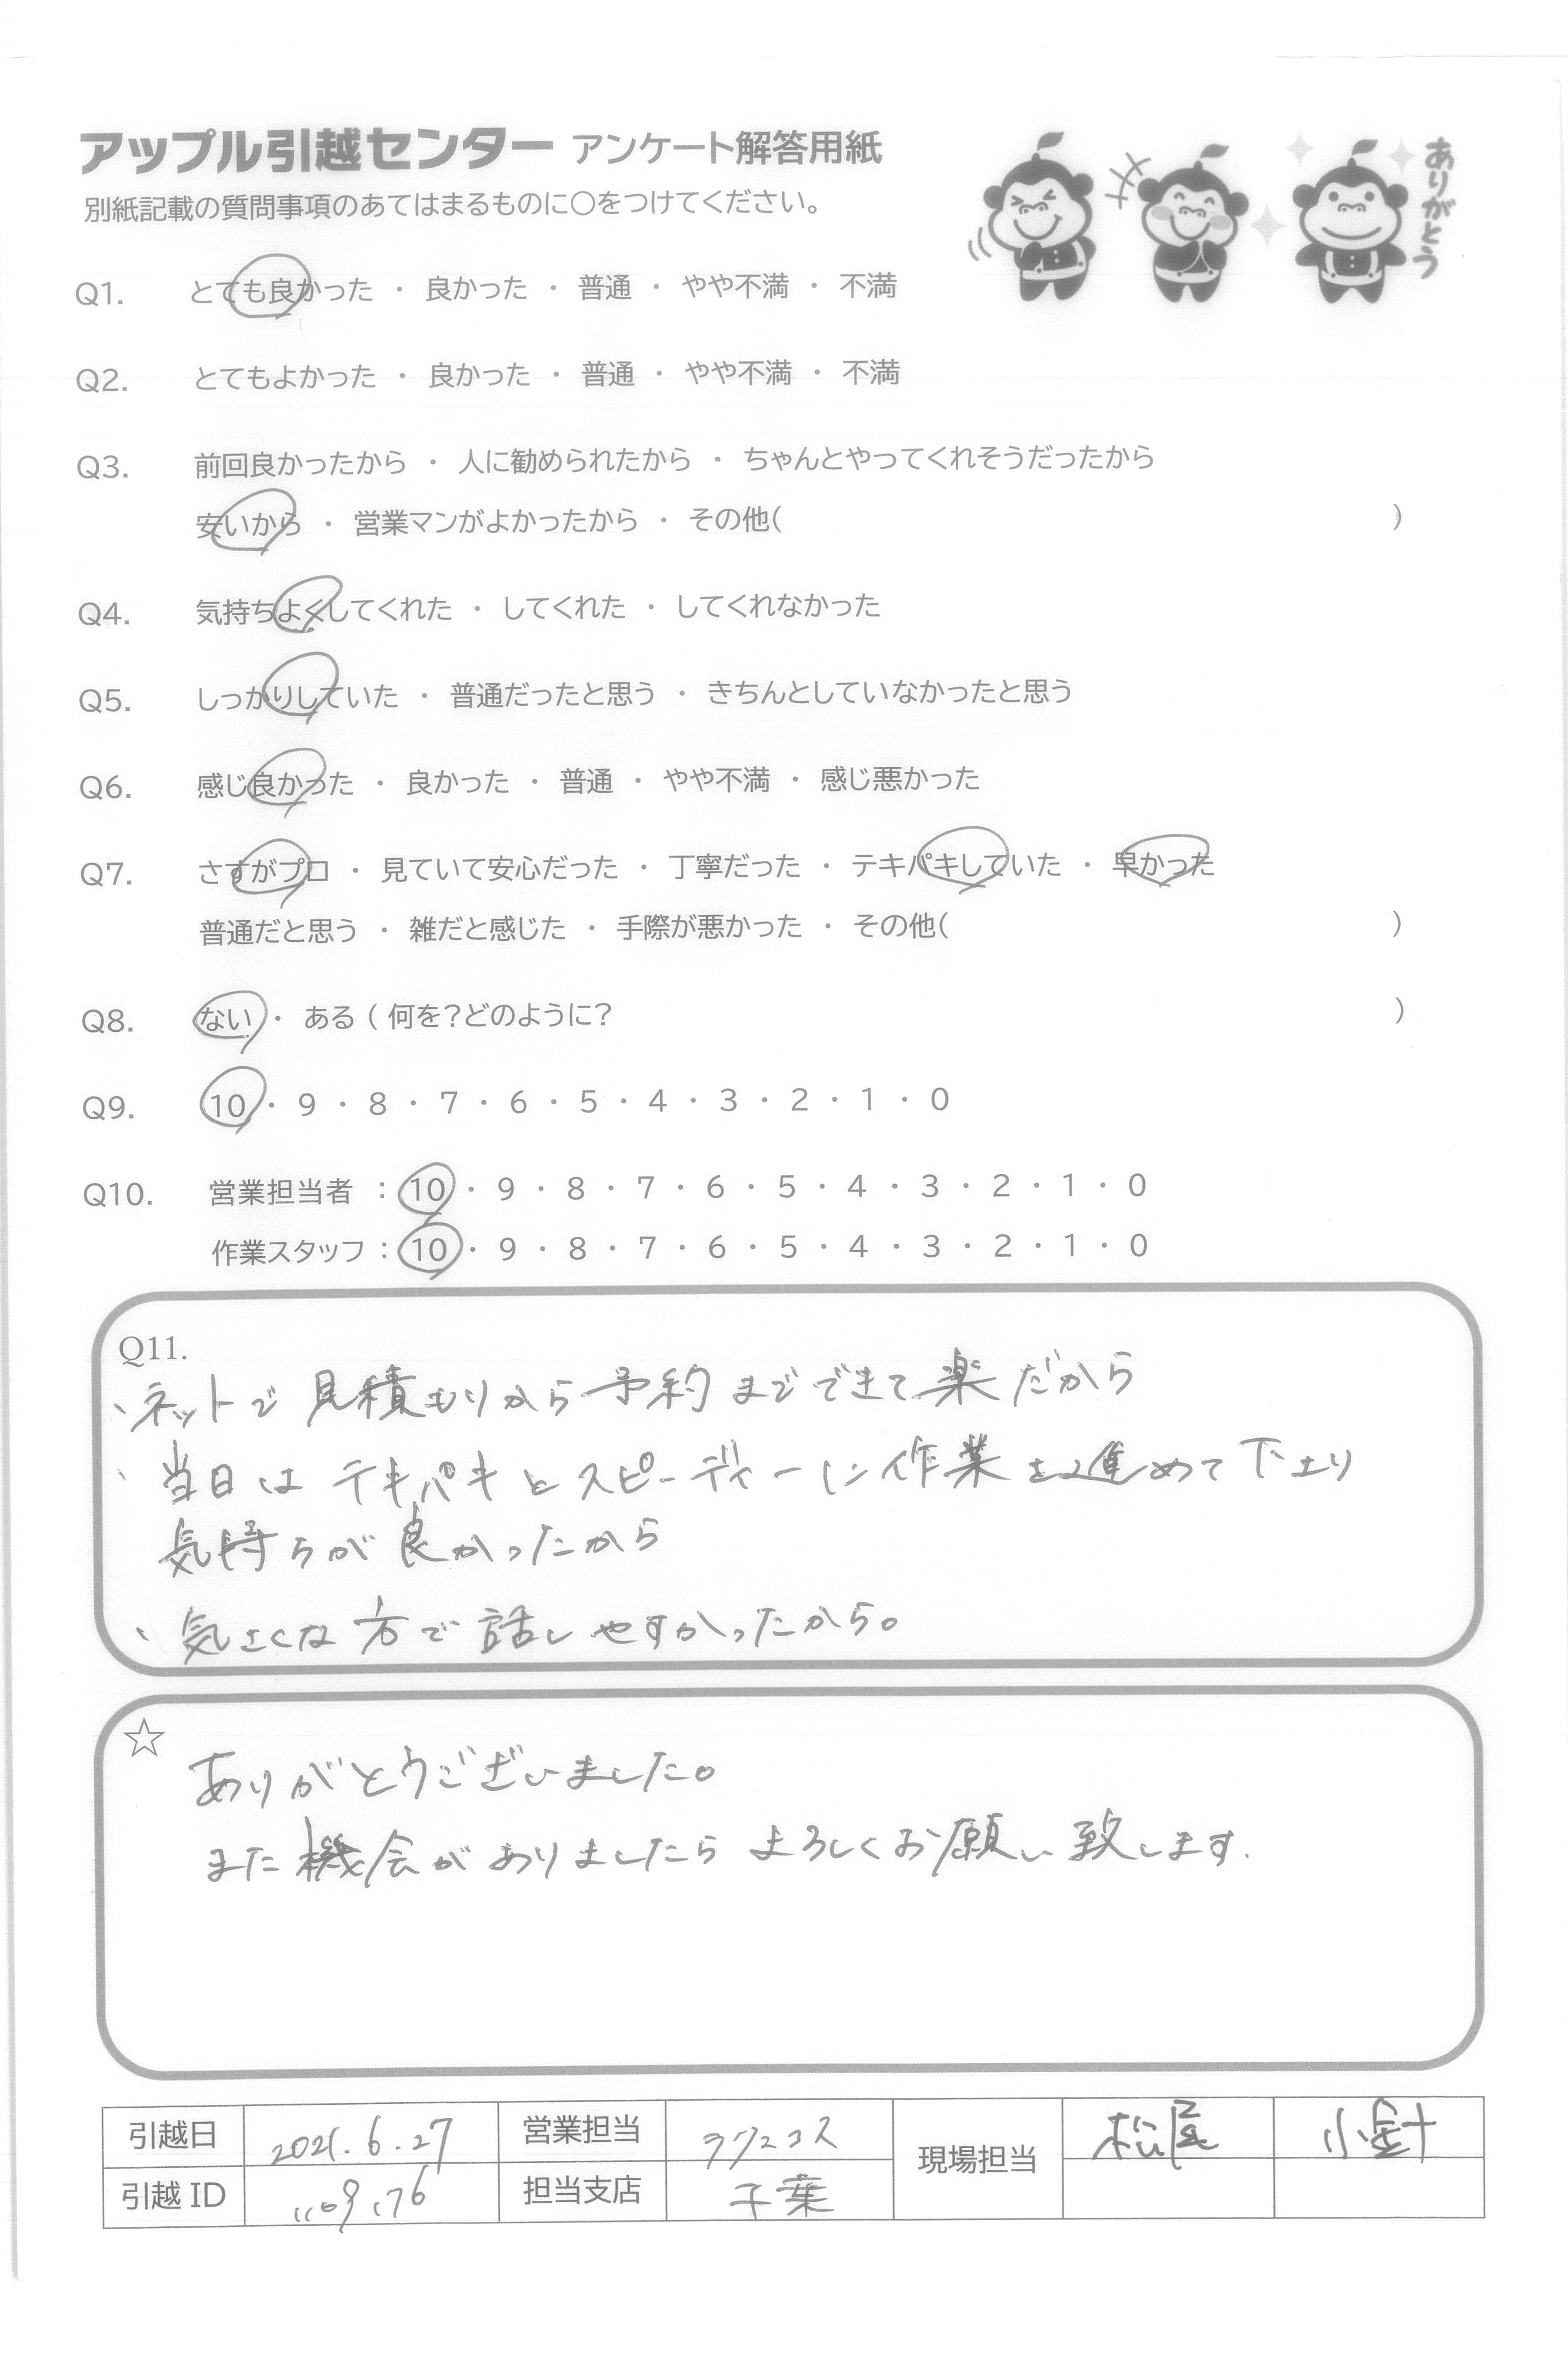 アップル引越センター アンケート解答用紙
別紙記載の質問事項のあてはまるものに〇をつけてください。
ありがとう
Q1. とても良かった ・ 良かった ・ 普通 ・ やや不満 ・ 不満
Q2. とてもよかった ・ 良かった ・ 普通 ・ やや不満 ・ 不満
Q3. 前回良かったから ・ 人に勧められたから ・ ちゃんとやってくれそうだったから
安いから ・ 営業マンがよかったから ・ その他( )
Q4. 気持ちよくしてくれた ・ してくれた ・ してくれなかった
Q5. しっかりしていた ・ 普通だったと思う ・ きちんとしていなかったと思う
Q6. 感じ良かった ・ 良かった ・ 普通 ・ やや不満 ・ 感じ悪かった
Q7. さすがプロ ・ 見ていて安心だった ・ 丁寧だった ・ テキパキしていた ・ 早かった
普通だと思う ・ 雑だと感じた ・ 手際が悪かった ・ その他( )
Q8. ない ・ ある ( 何を?どのように? )
Q9. 10 ・ 9 ・ 8 ・ 7 ・ 6 ・ 5 ・ 4 ・ 3 ・ 2 ・ 1 ・ 0
Q10. 営業担当者 : 10 ・ 9 ・ 8 ・ 7 ・ 6 ・ 5 ・ 4 ・ 3 ・ 2 ・ 1 ・ 0
作業スタッフ : 10 ・ 9 ・ 8 ・ 7 ・ 6 ・ 5 ・ 4 ・ 3 ・ 2 ・ 1 ・ 0
Q11.
、ネットで見積もりから予約までできて楽だから
、当日はテキパキとスピーディーに作業を進めて下さり
気持ちが良かったから
、気さくな方で話しやすかったから。
☆
ありがとうございました。
また機会がありましたらよろしくお願い致します.
引越日 2021.6.27 営業担当 ラクニコス 現場担当 松尾 小針
引越 ID 1109176 担当支店 千葉